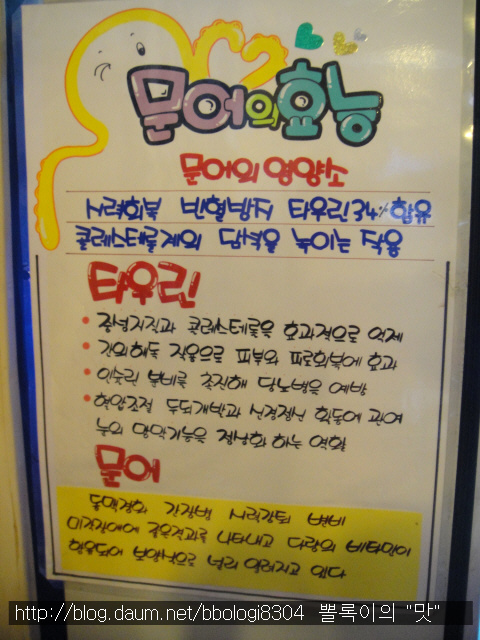 문어의효능
문어의 영양소
시력회복 빈혈방지 타우린34%함유
콜레스테롤제의 담석을 녹이는 작용
타우린
• 중성지질과 콜레스테롤을 효과적으로 억제
• 간의해독 작용으로 피부와 피로회복에 효과
• 인슐린 분비를 촉진해 당뇨병을 예방
• 혈압조절 두뇌개발과 신경정신 활동에 관여
뇌의 망막기능을 정상화 하는 역할
문어
동맥경화 간장병 시력감퇴 변비
미정장애에 좋은결과로 나타내고 다량의 비타민이
함유되어 보양식으로 널리 알려지고 있다
http://blog.daum.net/bbologi8304 뽈록이의 "맛"